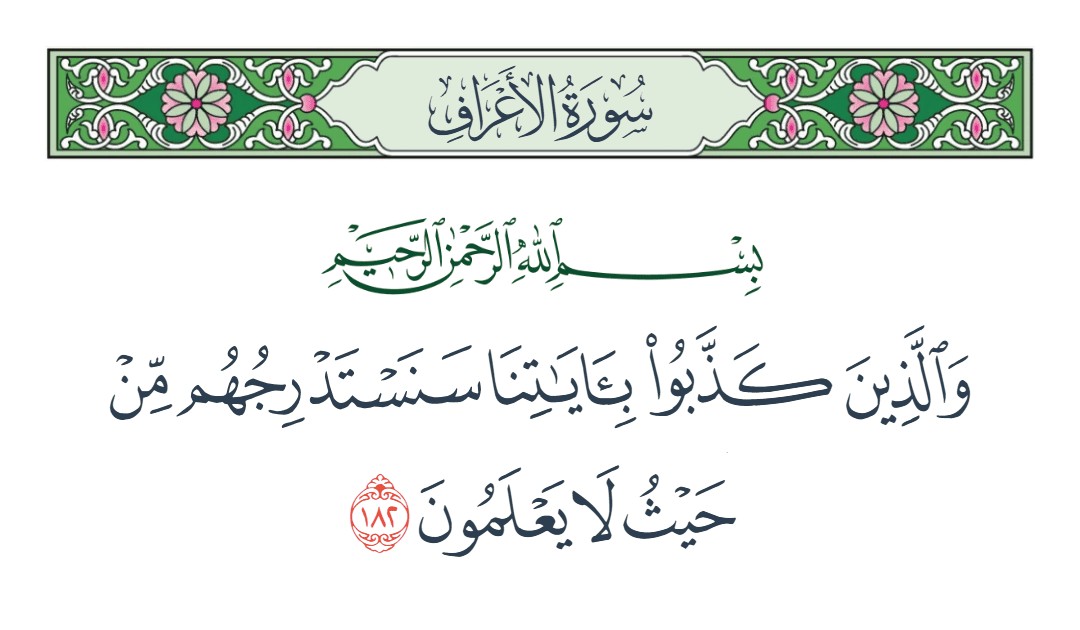 سُورَةُ الأَعْرَافِ
بِسْمِ ٱللَّهِ ٱلرَّحْمَٰنِ ٱلرَّحِيمِ
وَٱلَّذِينَ كَذَّبُوا۟ بِـَٔايَـٰتِنَا سَنَسْتَدْرِجُهُم مِّنْ
حَيْثُ لَا يَعْلَمُونَ ١٨٢